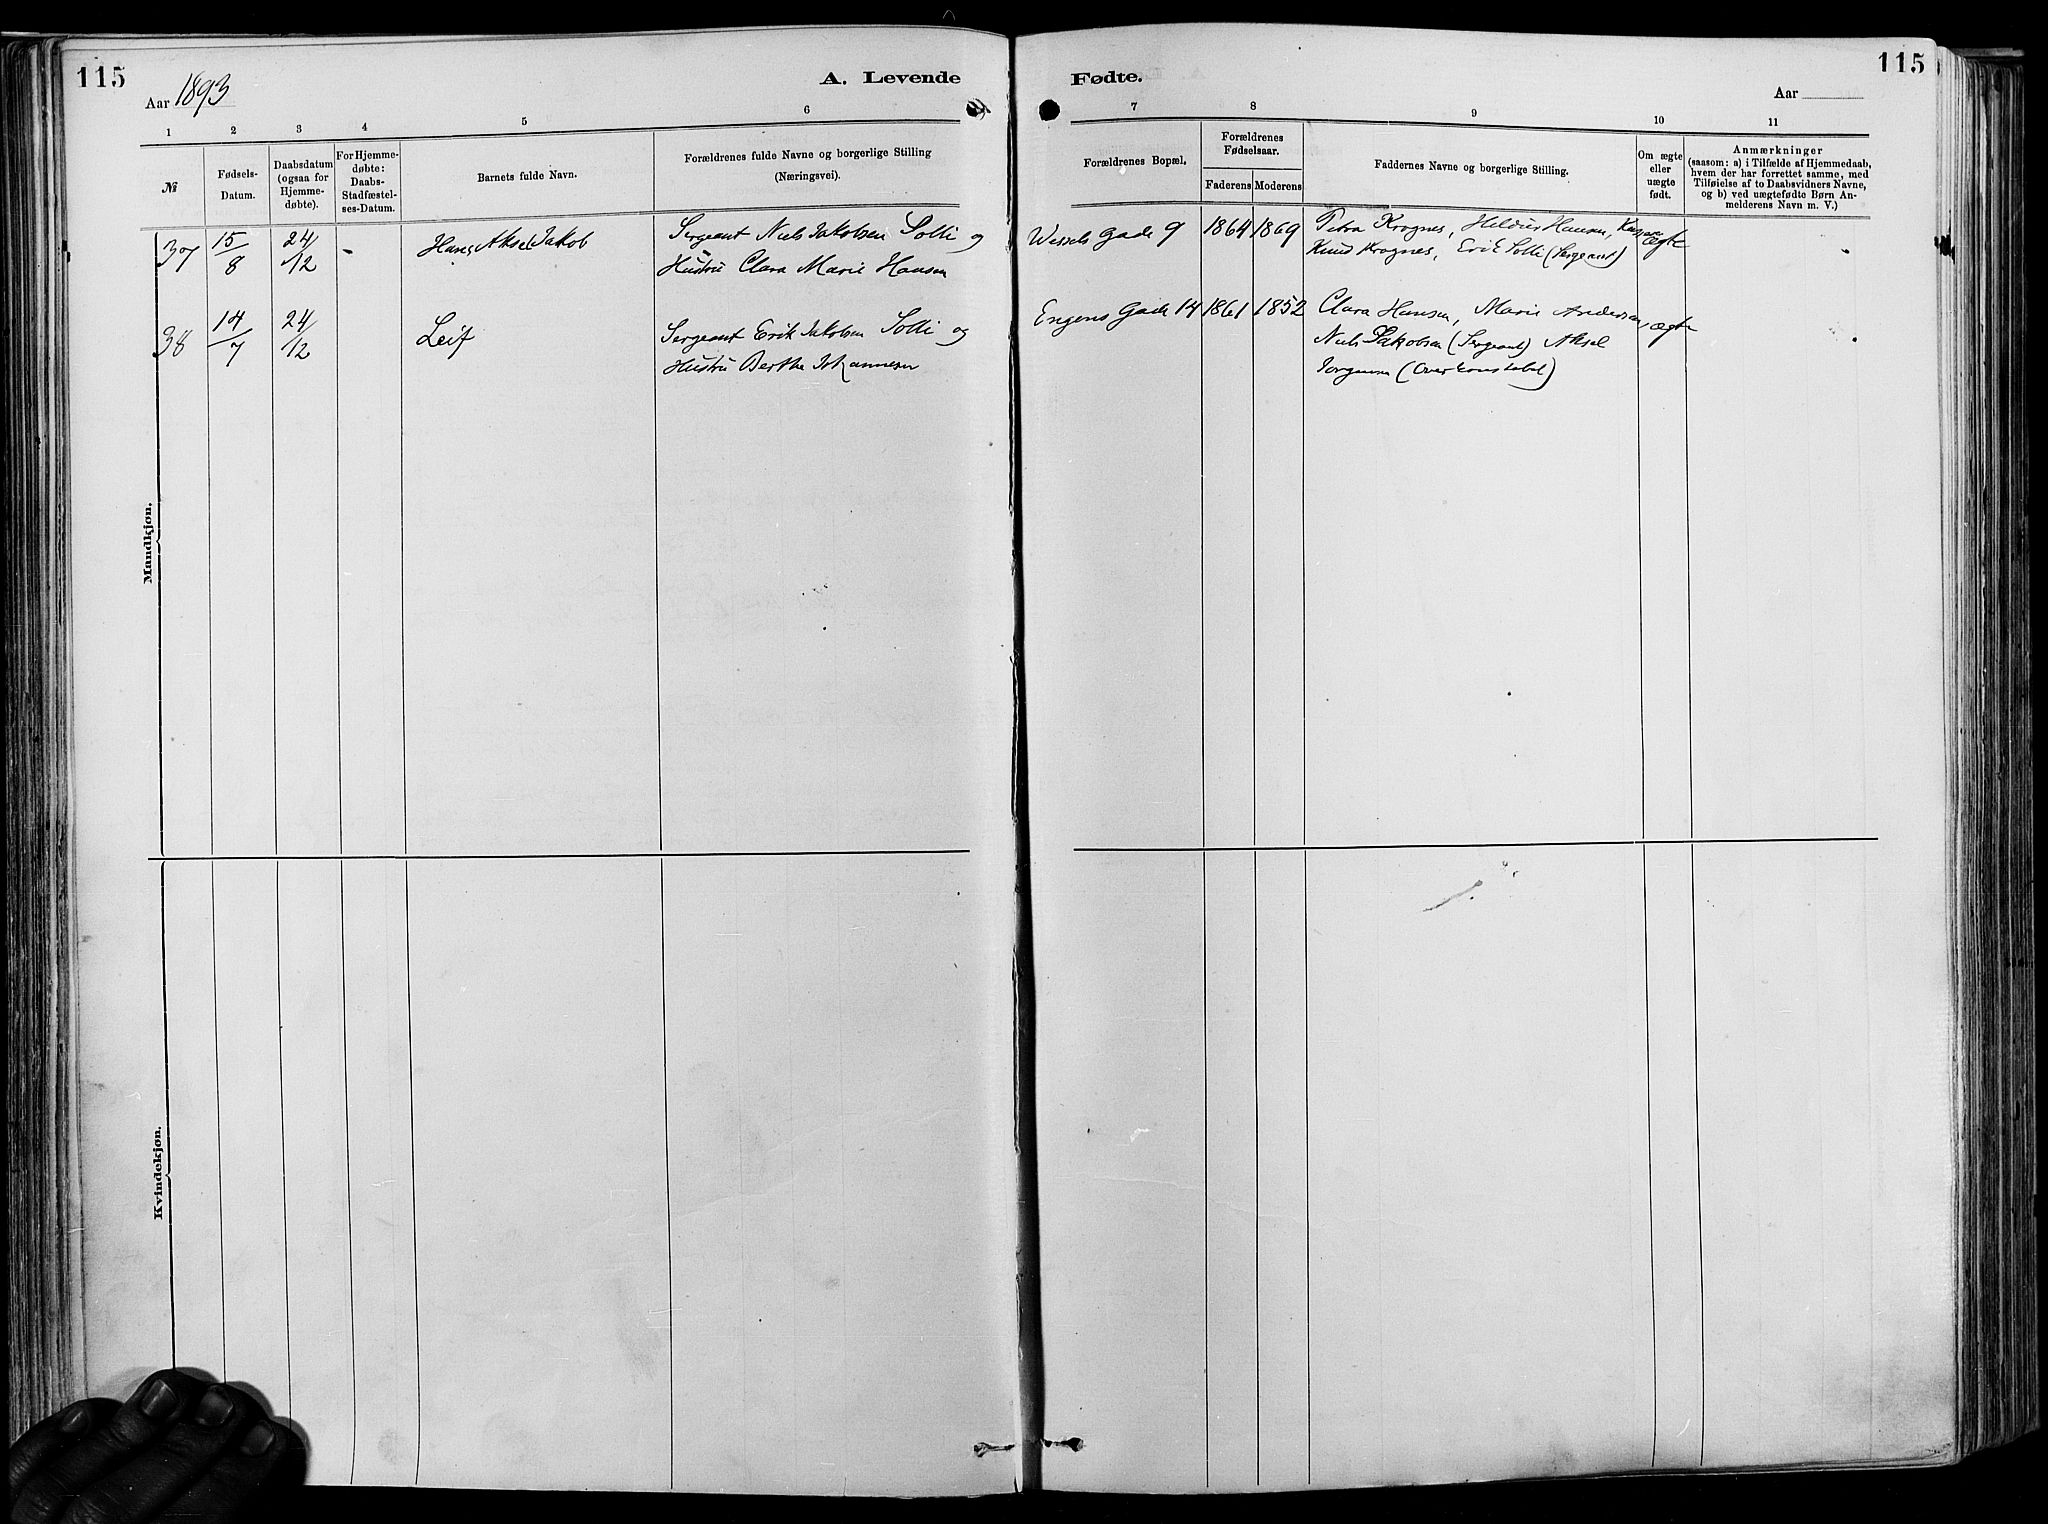 115
Aar 1893
A. Levende
1 2 3 4 5 6
№
Fødsels-
Datum.
Daabsdatum
(ogsaa for
Hjemme-
døbte).
For Hjemme-
døbte:
Daabs-
Stadfæstel-
ses-Datum.
Barnets fulde Navn.
Forældrenes fulde Navne og borgerlige Stilling
(Næringsvei).
Mandkjøn.
37 15/8 24/12 - Hans Aksel Jakob Sergeant Niels Jakobsen Solli og
Hustru Clara Marie Hansen
38 14/7 24/12 Leif Sergeant Erik Jakobsen Solli og
Hustru Berthe Johannesen
Kvindekjøn.
Fødte.
115
Aar
7 8 9 10 11
Forældrenes Bopæl.
Forældrenes
Fødselsaar.
Faderens Moderens
Faddernes Navne og borgerlige Stilling.
Om ægte
eller
uægte
født.
Anmærkninger
(saasom: a) i Tilfælde af Hjemmedaab,
hvem der har forrettet samme, med
Tilføielse af to Daabsvidners Navne,
og b) ved uægtefødte Børn An-
melderens Navn m. V.)
Wessels Gade 9 1864 1869 Petra Krognes, Hansen, ægte
Knud Krognes, Erik Solli (Sergeant)
Engens Gade 14 1861 1852 Clara Hansen, Marie Andersen, ægte
Niels Jakobsen (Sergeant) Aksel
Jorgensen (Overkonstabel)